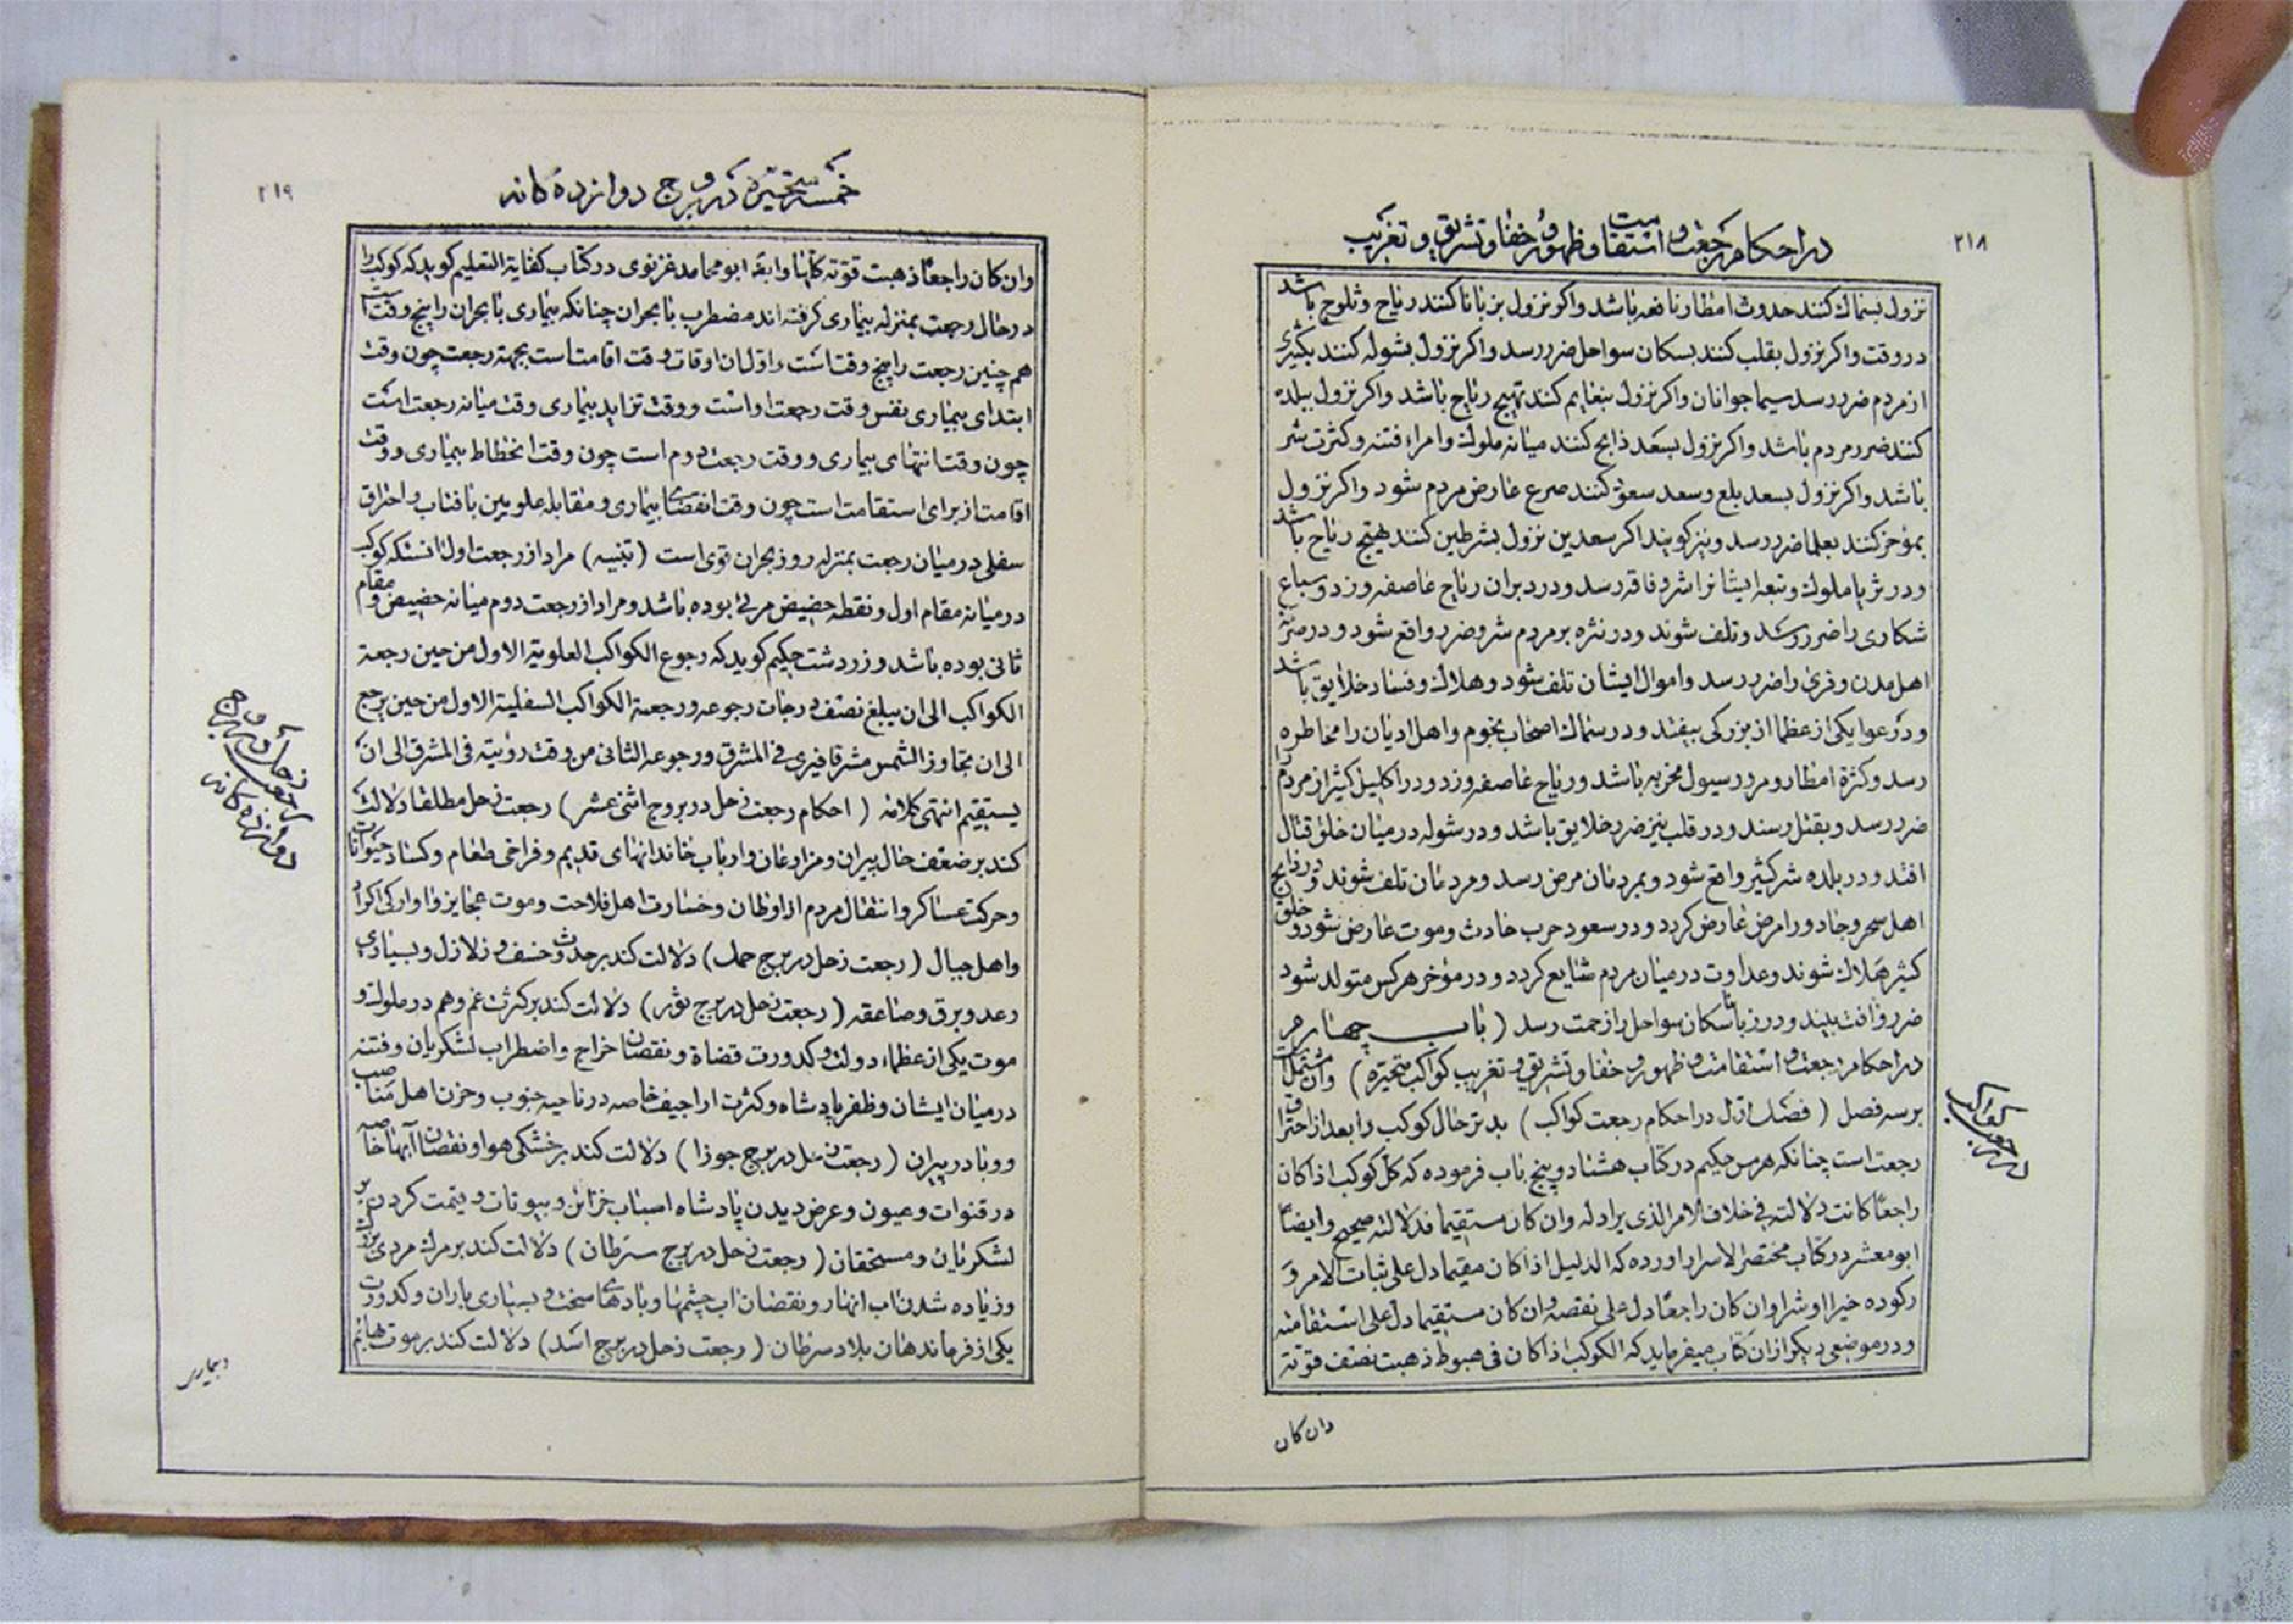 ۲۱۸
در احکام رجعت و استقامت و ظهور و خفا و تشریق و تغریب
نزول بسماك کنند حدوث امطار نافعه باشد و اکر نزول بزبانا کنند ریاح و ثلوج باشد
در وقت و اکر نزول بقلب کنند بسکان سواحل ضرر رسد و اکر نزول بشوله کنند بکثیری
از مردم ضرر رسد سیما جوانان و اکر نزول بنعایم کنند تهییج ریاح باشد و اکر نزول ببلده
کنند ضرر مردم باشد و اکر نزول بسعد ذابح کنند میانه ملوك و امراء فتنه و کثرت شر
باشد و اکر نزول بسعد بلع و سعد سعود کنند صرع عارض مردم شود و اکر نزول
بمؤخر کنند بعلما ضرر رسد و نیز کویند اکر سعدین نزول بشرطین کنند هیج ریاح باشد
و در ثریا ملوك و تبعه ایشانرا شر و فاقه رسد و در دبران ریاح عاصفه وزد و سباع
شکاری را ضرر رسد و تلف شوند و در نثره بر مردم شر و ضرر واقع شود و در صرفه
اهل مدن و قری را ضرر رسد و اموال ایشان تلف شود و هلاك و فساد خلایق باشد
و در عوا یکی از عظما از بزرکی بیفتد و در سماك اصحاب نجوم و اهل ادیان را مخاطره
رسد و کثرة امطار و مرور سیول مخربه باشد و ریاح عاصفه وزد و در اکلیل کثیر از مردم را
ضرر رسد و بقتل رسند و در قلب نیز ضرر خلایق باشد و در شوله در میان خلق قتال
افتد و در بلده شر کثیر واقع شود و بمردمان مرض رسد و مردمان تلف شوند و در ذابح
اهل سحر و جادو را مرض عارض کردد و در سعود حرب حادث و موت عارض شود و خلق
کثیر هلاك شوند و عداوت در میان مردم شایع کردد و در مؤخر هرکس متولد شود
ضرر و آفت بیند و در رشا سکان سواحل را زحمت رسد ( باب چهارم
در احکام رجعت و استقامت و ظهور و خفا و تشریق و تغریب کواکب متحیّره ) و آن مشتمل است
بر سه فصل ( فصل اول در احکام رجعت کواکب ) بدتر حال کوکب را بعد از احتراق
رجعت است چنانکه هرمس حکیم در کتاب هشتاد و پنج باب فرموده که کلّ کوکب اذا کان
راجعًا کانت دلالته فی خلاف الامر الذی یراد له و ان کان مستقیما فدلالته صحیح و ایضاً
ابو معشر در کتاب مختصر الاسرار اورده که الدلیل اذا کان مقیما دل علی ثبات الامر و
رکوده خیرا او شرا و ان کان راجعًا دل علی نقصه و ان کان مستقیما دل علی استقامته
و در موضعی دیکر از آن کتاب میفرماید که الکوکب اذا کان فی هبوط ذهبت نصف قوّته
در رجعت کواکب
وان کان
۲۱۹
خمسه متحیّره در بروج دوازده کانه
و ان کان راجعًا ذهبت قوّته کلّها و ایضًا ابو محامد غزنوی در کتاب کفایة التعلیم کوید که کوکب را
در حال رجعت بمنزله بیماری کرفته اند مضطرب با بحران چنانکه بیماری با بحران را پنج وقت است
هم چنین رجعت را پنج وقت است و اول آن اوقات وقت اقامت است بجهة رجعت چون وقت
ابتدای بیماری نفس وقت رجعت او است و وقت تزاید بیماری وقت میانه رجعت است
چون وقت انتهای بیماری و وقت رجعت دوم است چون وقت انحطاط بیماری و وقت
اقامت از برای استقامت است چون وقت انقضای بیماری و مقابله علویین با فتاب و احتراق
سفلی در میان رجعت بمنزله روز بحران قوی است ( تنبیه ) مراد از رجعت اول آنستکه کوکب
در میانه مقام اول و نقطه حضیض مرئی بوده باشد و مراد از رجعت دوم میانه حضیض و مقام
ثانی بوده باشد و زردشت حکیم کوید که رجوع الکواکب العلویة الاول من حین رجعة
الکواکب الی ان یبلغ نصف درجات رجوعه و رجعة الکواکب السفلیة الاول من حین یرجع
الی ان تجاوز الشمس مشرقا فیری فی المشرق و رجوعه الثانی من وقت رؤیته فی المشرق الی ان
یستقیم انتهی کلامه ( احکام رجعت زحل در بروج اثنی عشر ) رجعت زحل مطلقا دلالت
کند بر ضعف حال پیران و مزارعان و ارباب خاندانهای قدیم و فراخی طعام و کساد حیوانات
و حرکت عساکر و انتقال مردم از اوطان و خسارت اهل فلاحت و موت عجایز و آوارکی اکراد
و اهل جبال ( رجعت زحل در برج حمل ) دلالت کند بر حدوث خسف و زلازل و بسیاری
رعد و برق و صاعقه ( رجعت زحل در برج ثور ) دلالت کند بر کثرت غم و هم در ملوك و
موت یکی از عظماء دولت و کدورت قضاة و نقصان خراج و اضطراب لشکریان و فتنه
در میان ایشان و ظفر پادشاه و کثرت اراجیف خاصه در ناحیه جنوب و حزن اهل مناصب
و وبا در پیران ( رجعت زحل در برج جوزا ) دلالت کند بر خشکی هوا و نقصان آبها خاصه
در قنوات و عیون و عرض دیدن پادشاه اسباب خزائن و بیوتات و قیمت کردن بر
لشکریان و مستحقان ( رجعت زحل در برج سرطان ) دلالت کند بر مرك مردی بزرك
و زیاده شدن اب انهار و نقصان اب چشمها و بادهای سخت و بسیاری باران و کدورت
یکی از فرماندهان بلاد سرطان ( رجعت زحل در برج اسد ) دلالت کند بر موت بهائم
رجعت زحل در بروج
دوازده کانه
و بیماری